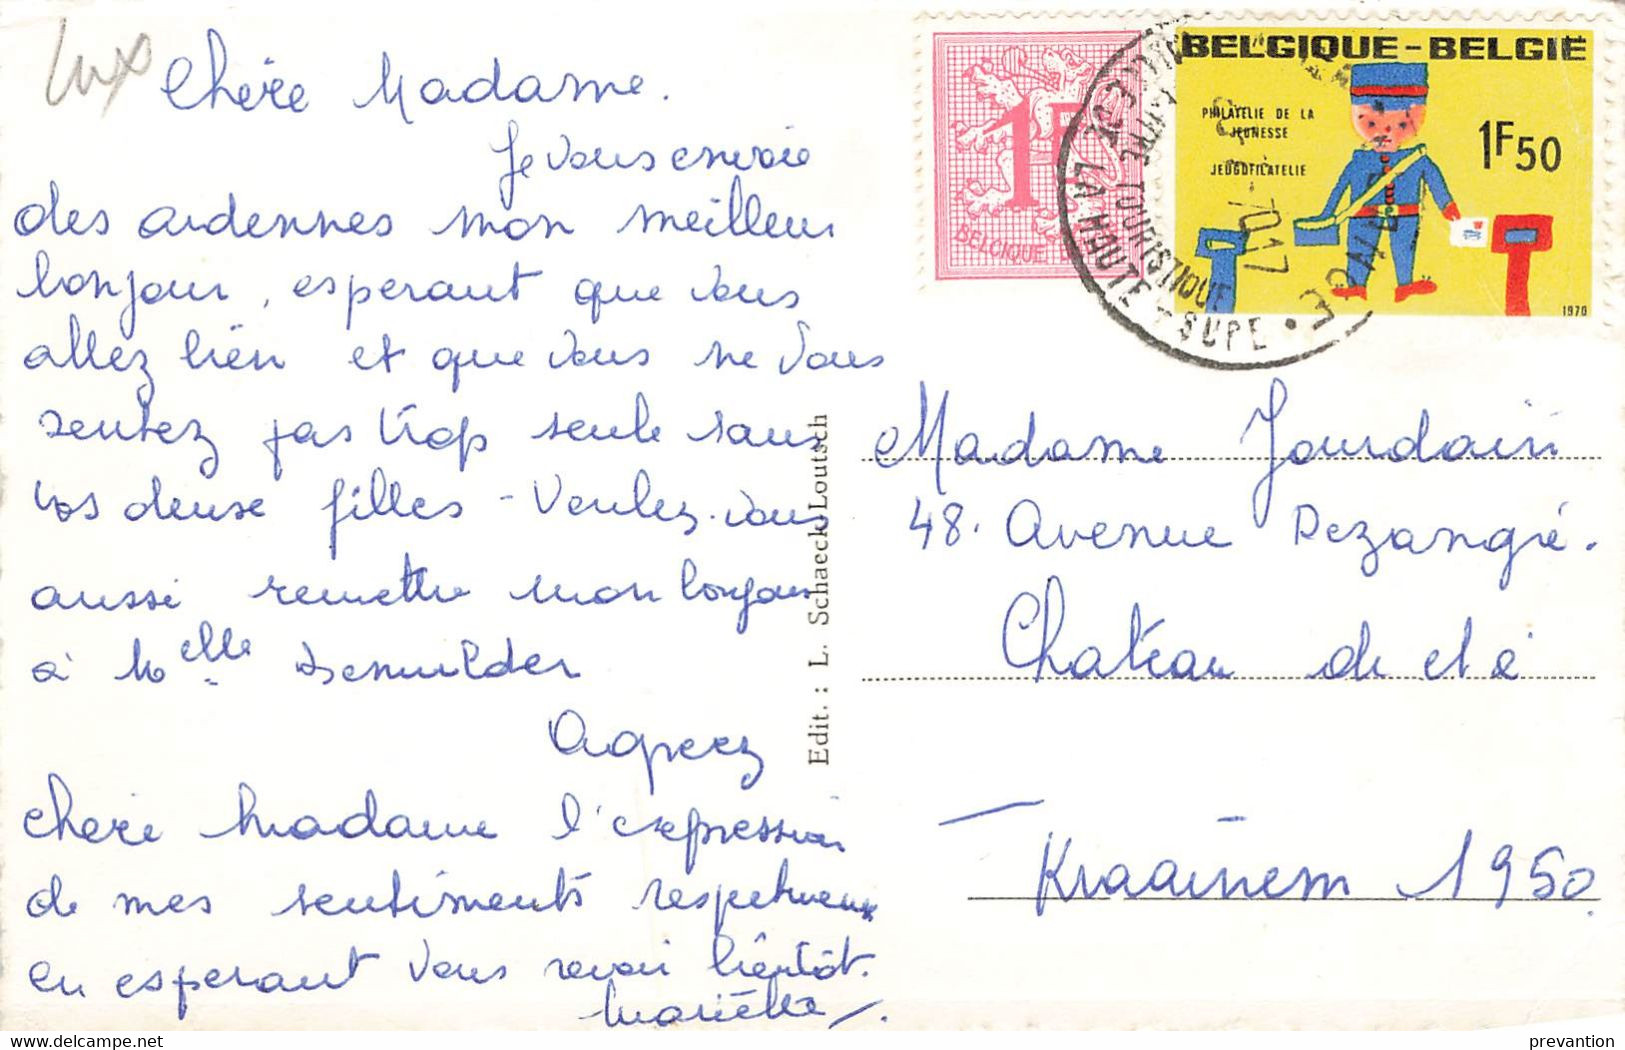 lux
Chère Madame.
Je vous envoie
des ardennes mon meilleur
bonjour, esperant que vous
allez bien et que vous ne vous
sentez pas trop seule sans
vos deux filles - Veulez-vous
aussi remettre mon bonjour
à Melle Demulder
Agreez
chère Madame l'expression
de mes sentiments respectueux
en esperant vous revoir bientôt.
Marielle
Edit. : L. Schaeck-Loutsch
1F
BELGIQUE
BELGIQUE-BELGIË
PHILATELIE DE LA
JEUNESSE
JEUGDFILATELIE
1F50
1970
TOURISTIQUE
LA HAUTE SURE
Madame Jourdain
48. Avenue Dezangré.
Chateau de eté
Kraainem 1950.
prevantion